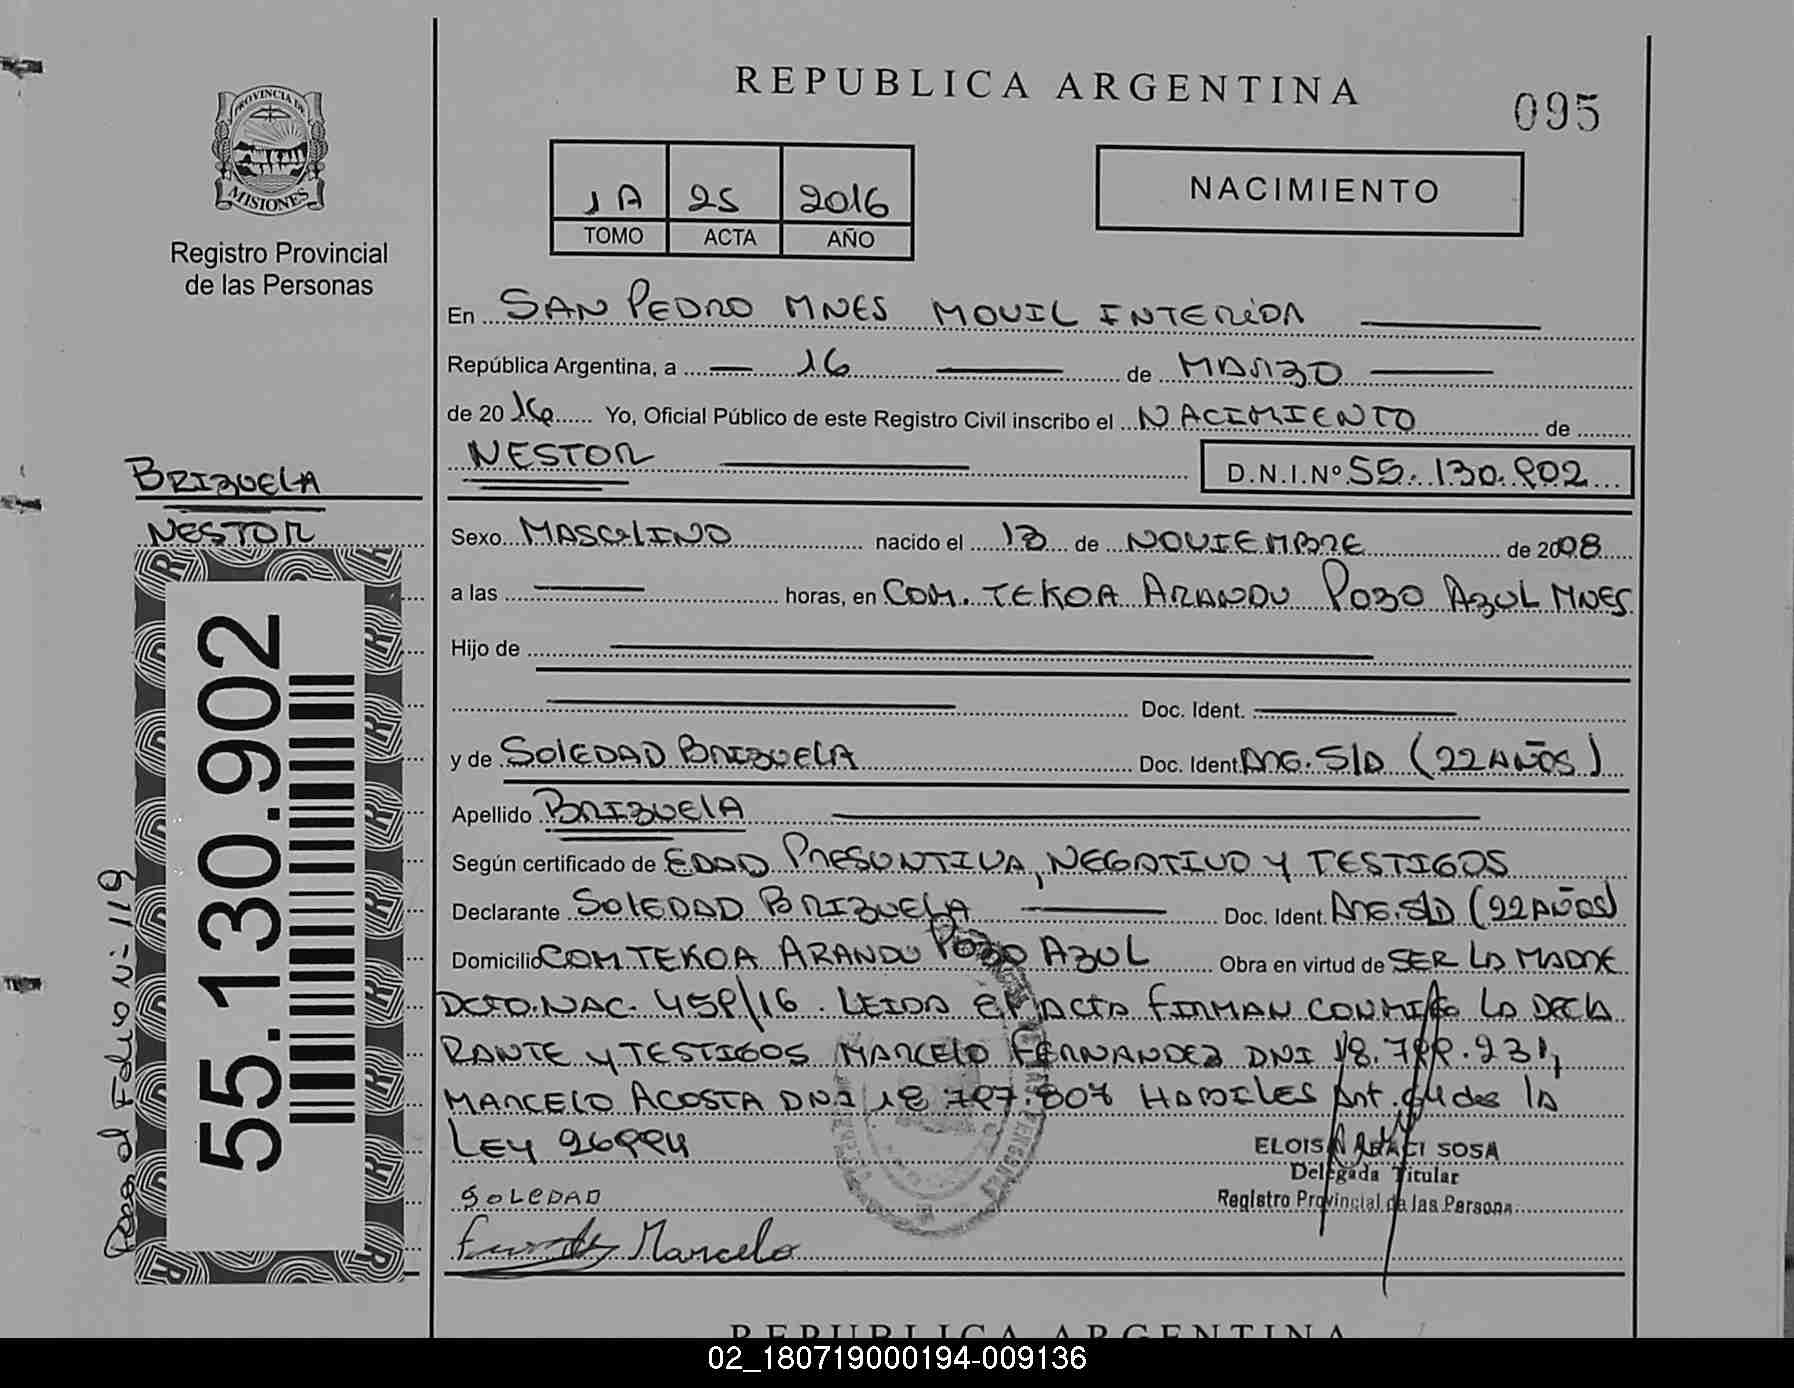 REPUBLICA ARGENTINA
095
PROVINCIA DE
MISIONES
Registro Provincial
de las Personas
1A 25 2016
TOMO ACTA AÑO
NACIMIENTO
En SAN PEDRO MNES MOVIL INTERIOR
República Argentina, a 16 de MARZO
de 2016 Yo, Oficial Público de este Registro Civil inscribo el NACIMIENTO de
NESTOR D.N.I.Nº 55.130.902
BRIZUELA
NESTOR
Sexo MASCULINO nacido el 13 de NOVIEMBRE de 2008
a las horas, en COM. TEKOA ARANDU POZO AZUL MNES
Hijo de
Doc. Ident.
y de SOLEDAD BRIZUELA Doc. Ident. ARG. S/D (22 AÑOS)
Apellido BRIZUELA
Según certificado de EDAD PRESUNTIVA, NEGATIVO Y TESTIGOS
Declarante SOLEDAD BRIZUELA Doc. Ident. ARG. S/D (22 AÑOS)
Domicilio COM TEKOA ARANDU POZO AZUL Obra en virtud de SER LA MADRE
DCTO.NAC. 459/16. LEIDA EL ACTA FIRMAN CONMIGO LA DECLA
RANTE Y TESTIGOS MARCELO FERNANDEZ DNI 18.799.231,
MARCELO ACOSTA DNI 18.797.807 HABILES Art. 64 de la
LEY 26994
ELOISA ARACI SOSA
Delegada Titular
Registro Provincial de las Persona
SOLEDAD
Marcelo
55.130.902
Pasa al Folio Nº 119
REPUBLICA ARGENTINA
02_180719000194-009136